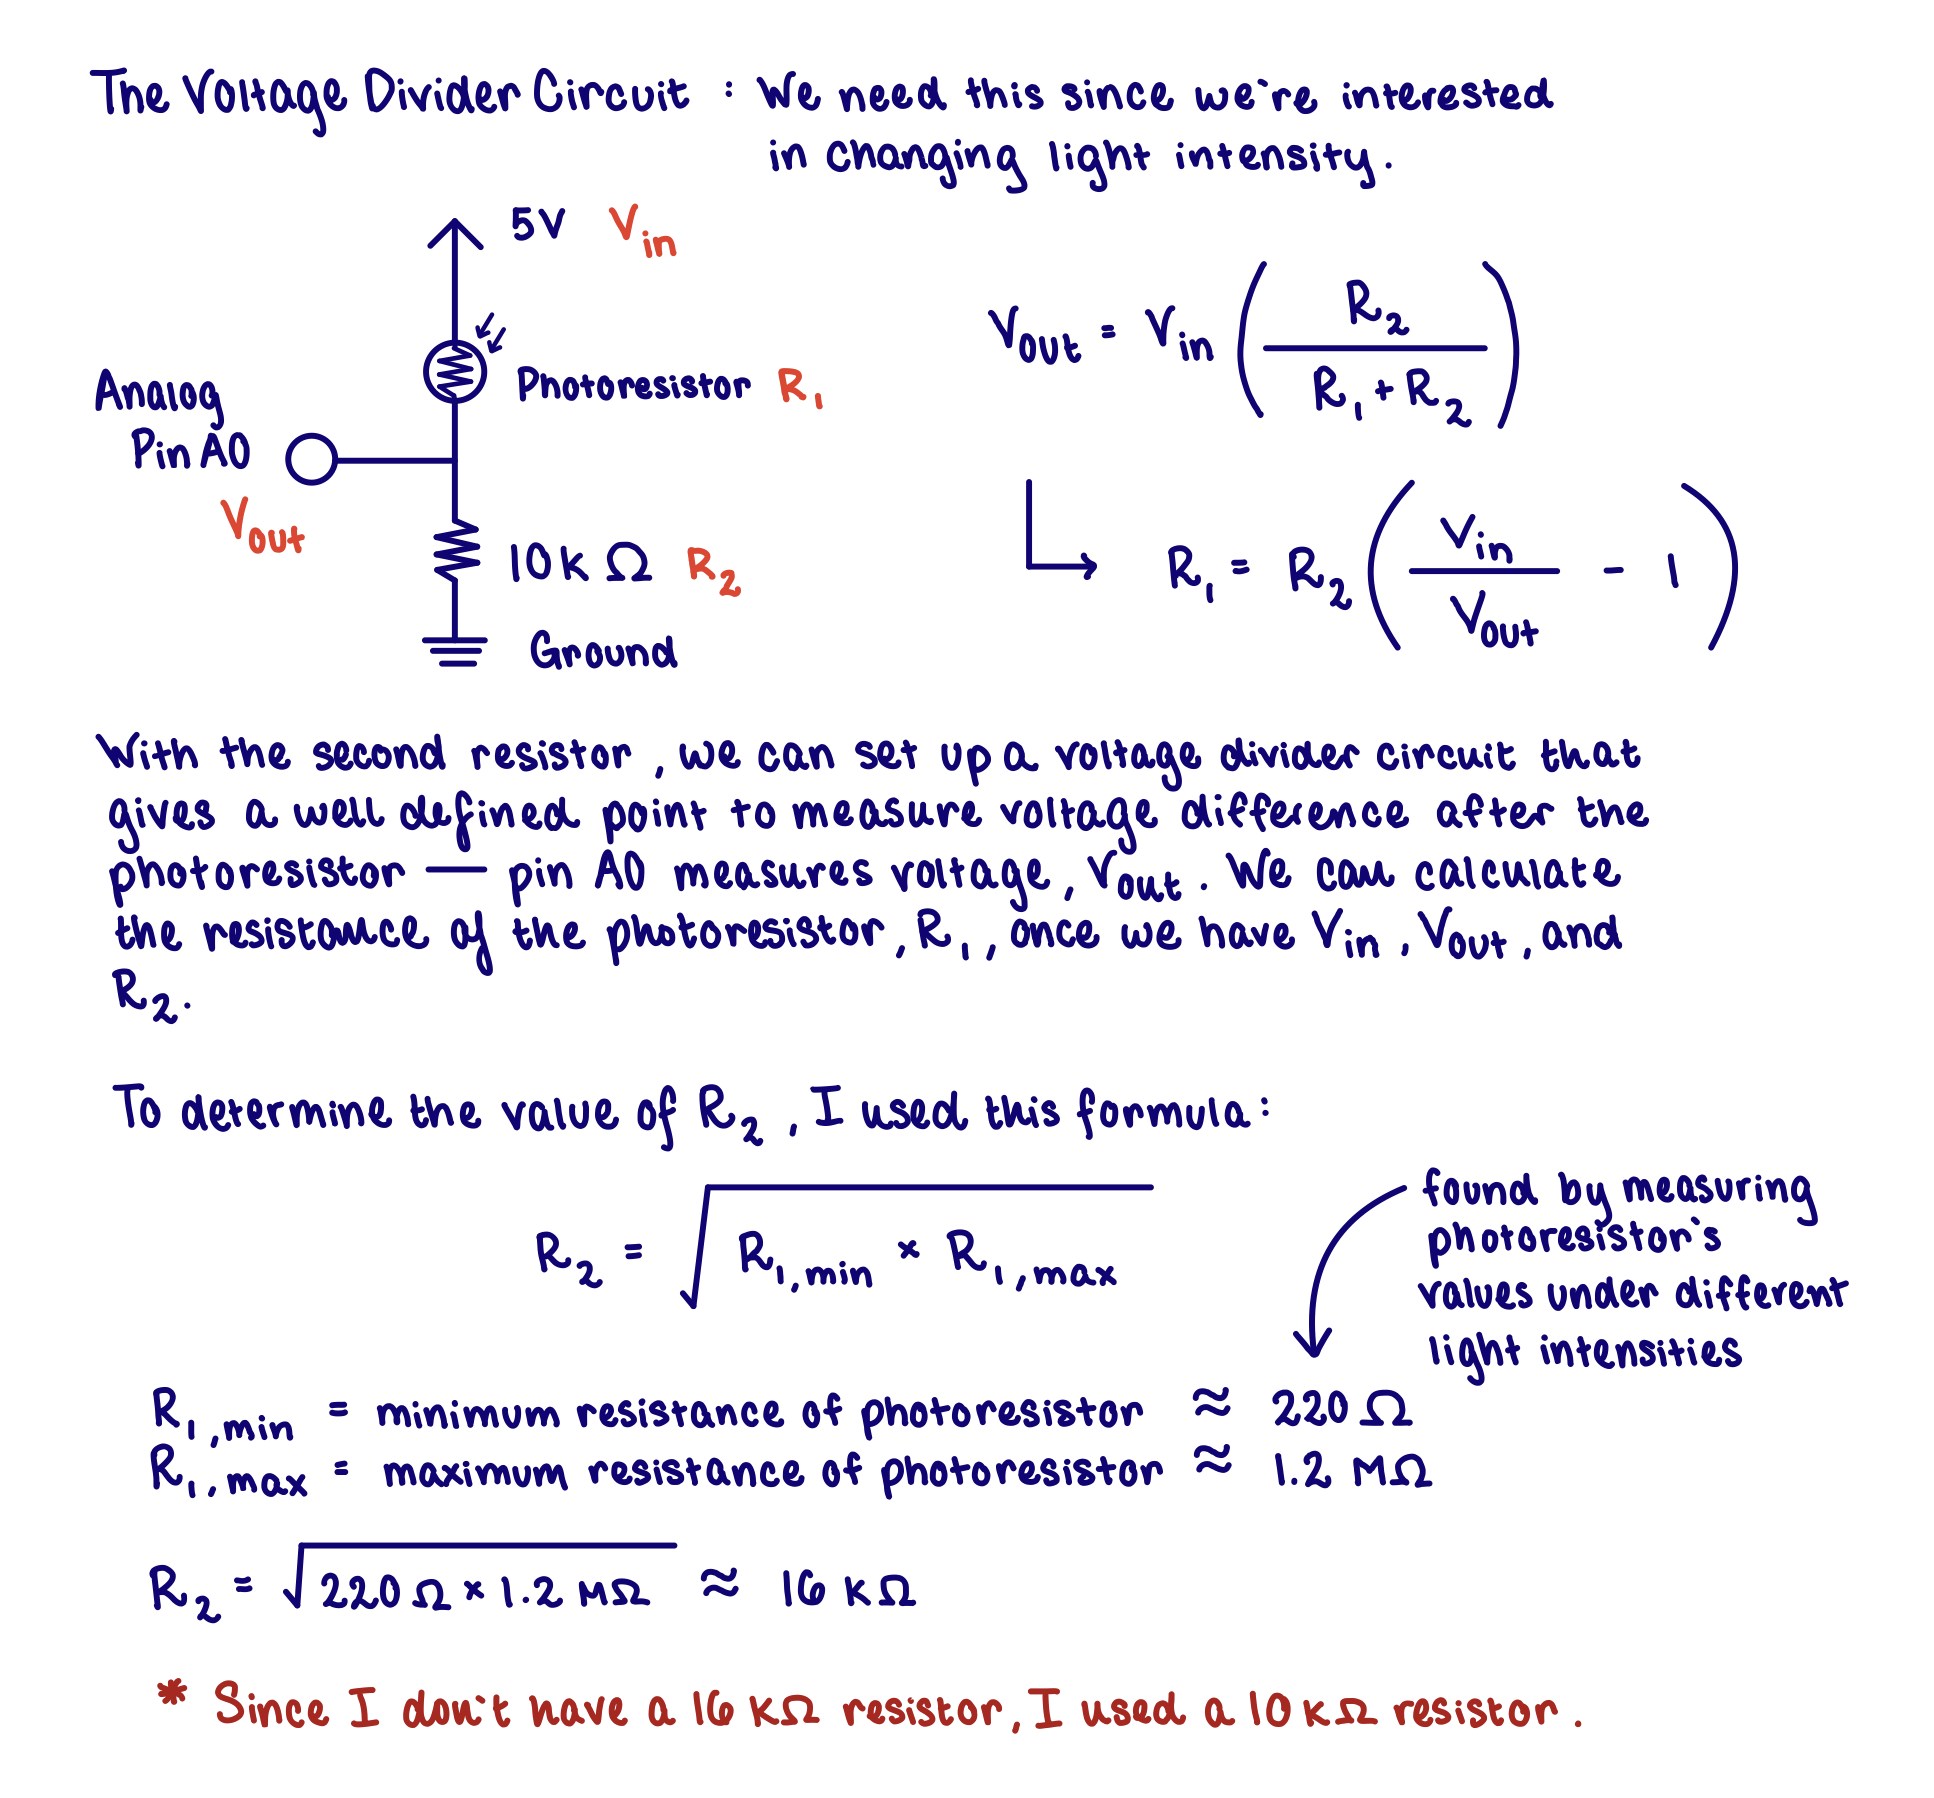 The Voltage Divider Circuit : We need this since we're interested
in changing light intensity.
5V V_in
Photoresistor R_1
Analog
Pin A0
V_out
10k Ω R_2
Ground
V_out = V_in ( R_2 / (R_1 + R_2) )
R_1 = R_2 ( V_in / V_out - 1 )
With the second resistor, we can set up a voltage divider circuit that
gives a well defined point to measure voltage difference after the
photoresistor — pin A0 measures voltage, V_out. We can calculate
the resistance of the photoresistor, R_1, once we have V_in, V_out, and
R_2.
To determine the value of R_2, I used this formula:
R_2 = √(R_1,min × R_1,max)
found by measuring
photoresistor's
values under different
light intensities
R_1,min = minimum resistance of photoresistor ≈ 220 Ω
R_1,max = maximum resistance of photoresistor ≈ 1.2 MΩ
R_2 = √(220 Ω × 1.2 MΩ) ≈ 16 kΩ
* Since I don't have a 16 kΩ resistor, I used a 10 kΩ resistor.